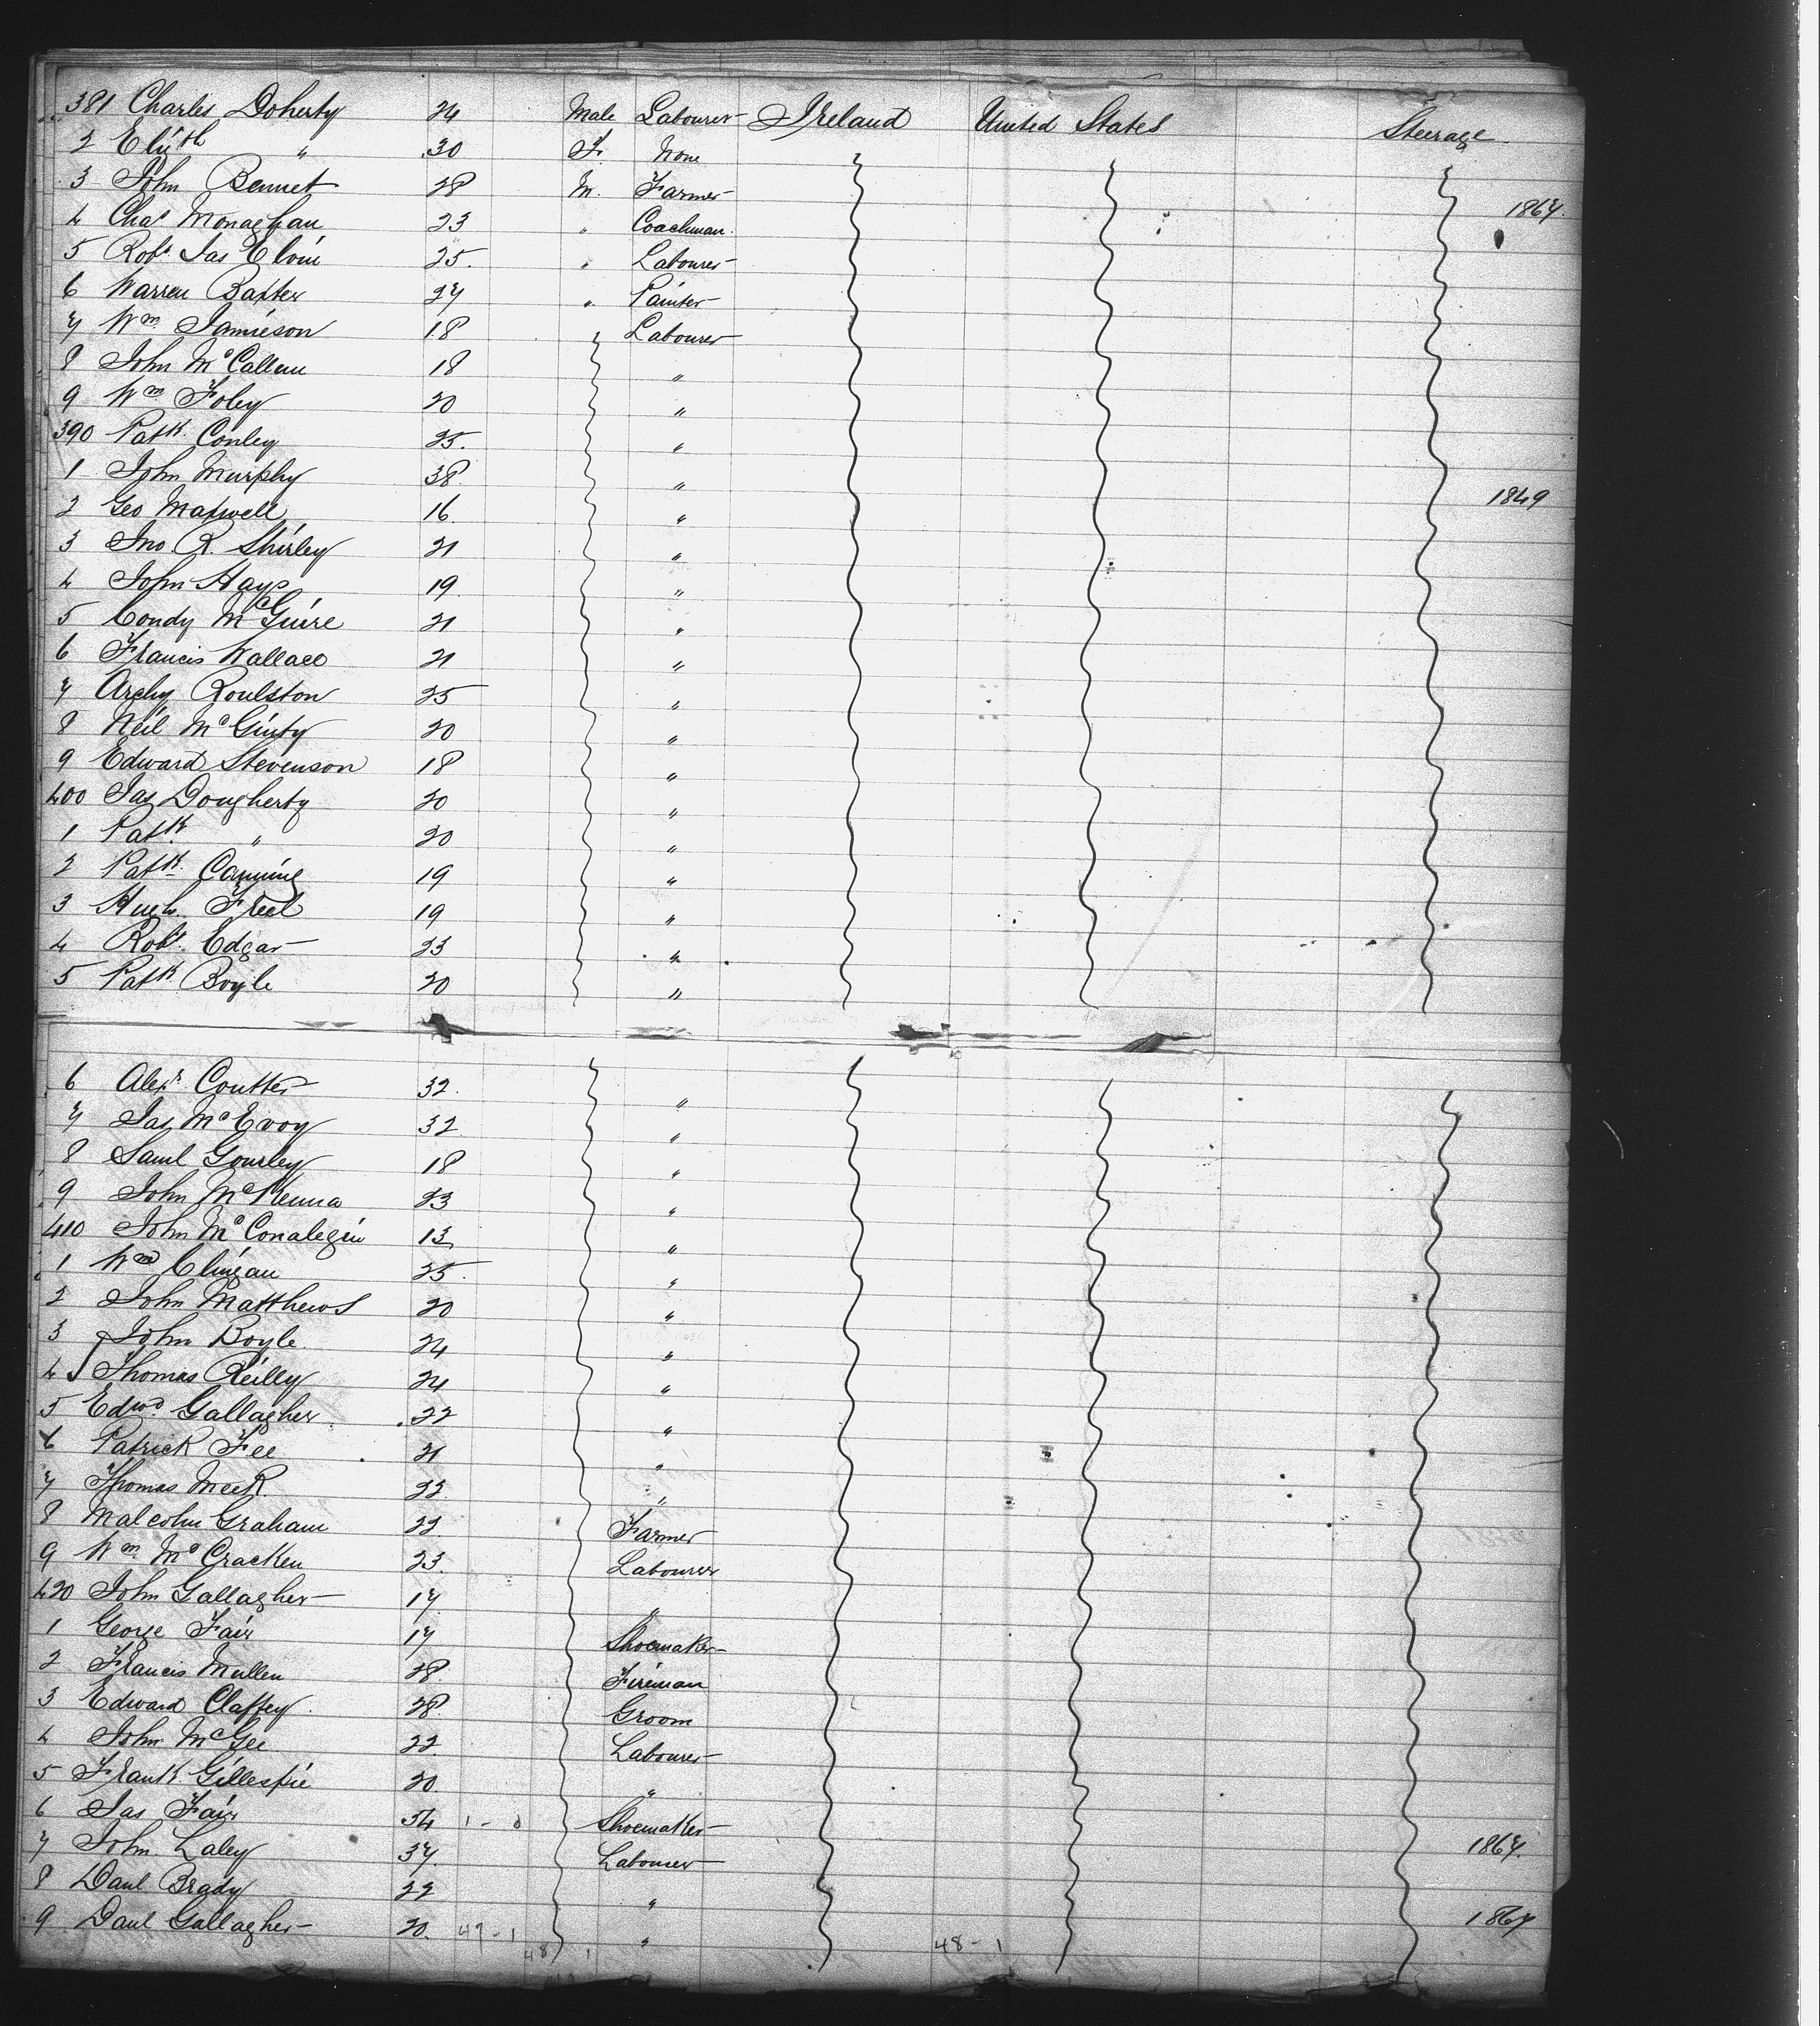 381 Charles Doherty 24 Male Labourer Ireland United States Steerage
2 Elizth " 30 F. None
3 John Bennet 28 M. Farmer
4 Chas Monaghan 23 " Coachman 1867.
5 Robt Jas Elvin 25. " Labourer
6 Warren Baxter 27 " Painter
7 Wm Jamieson 18 Labourer
8 John McCallum 18 "
9 Wm Foley 20 "
390 Patk Conley 25. "
1 John Murphy 38 "
2 Geo Maxwell 16. " 1849
3 Jno. R. Shirley 21 "
4 John Hays 19 "
5 Condy McGuire 21 "
6 Francis Wallace 21 "
7 Archy Roulston 25 "
8 Neil McGinty 20 "
9 Edward Stevenson 18 "
400 Jas Dougherty 20 "
1 Patk " 20 "
2 Patk Canning 19 "
3 Hugh Freel 19 "
4 Robt Edgar 23 "
5 Patk Boyle 20 "
6 Alexr Coulter 32. "
7 Jas McEvoy 32 "
8 Saml Gourley 18 "
9 John McKenna 23 "
410 John McConalegin 13 "
1 Wm Clingan 25. "
2 John Matthews 20 "
3 John Boyle 24 "
4 Thomas Reilly 24 "
5 Edwd Gallagher 22 "
6 Patrick Fee 21 "
7 Thomas Meek 22. "
8 Malcolm Graham 22. Farmer
9 Wm McCracken 23. Labourer
420 John Gallagher 17 "
1 George Fair 17 Shoemaker
2 Francis Mullen 28 Fireman
3 Edward Claffey 28 Groom
4 John McGee 22. Labourer
5 Frank Gillespie 20. "
6 Jas Fair 54 1 - 0 Shoemaker
7 John Laley 37. Labourer 1867.
8 Danl Brady 22 "
9 Danl Gallagher 20. 47-1 " 1867
48 1 48-1